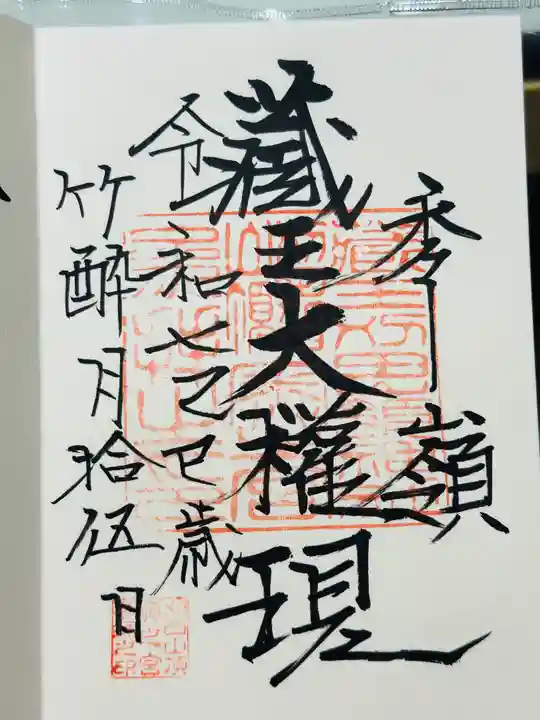 秀嶺
藏王大權現
令和七乙巳歳
竹酔月拾伍日